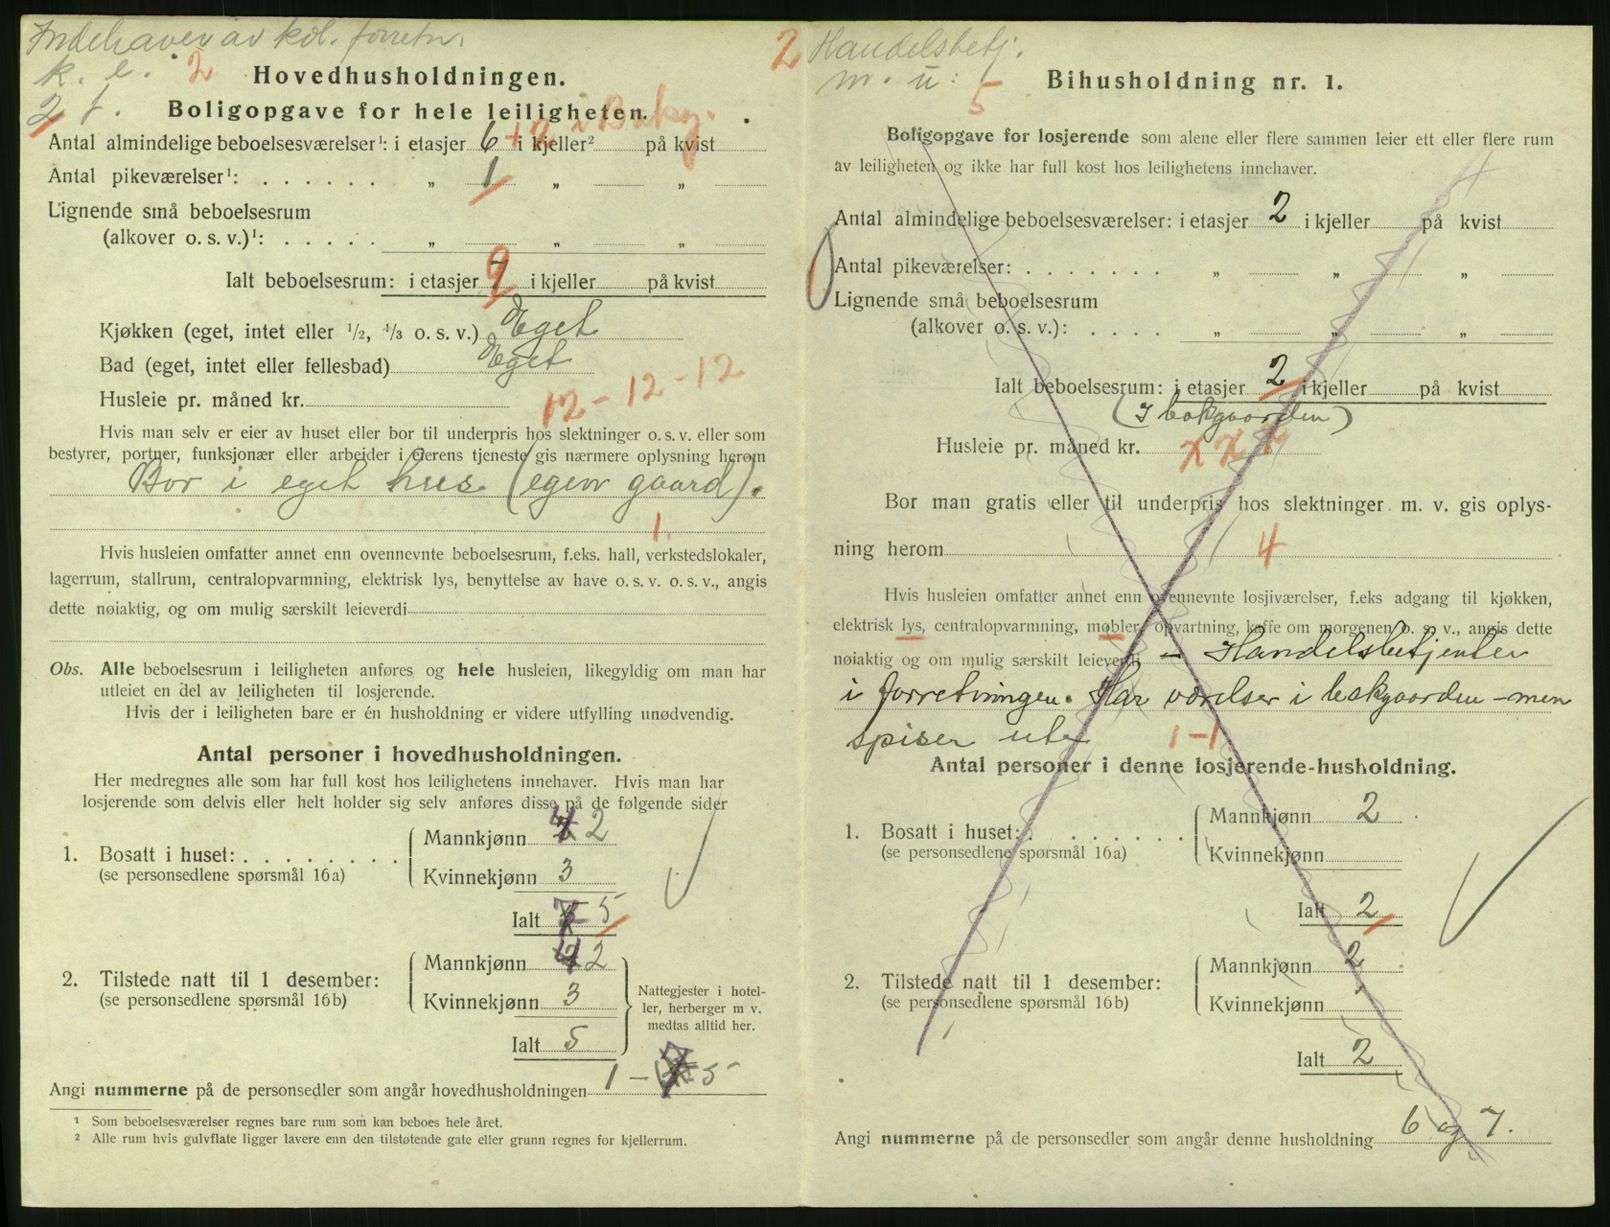 Indehaver av kol. forretn.
k. e. 2
2 f.
Hovedhusholdningen.
Boligopgave for hele leiligheten.
Antal almindelige beboelsesværelser¹: i etasjer 6 + 2 i Bakg. i kjeller² på kvist
Antal pikeværelser¹: . . . . . . „ 1 „ „
Lignende små beboelsesrum
(alkover o. s. v.)¹: . . . . . „ „ „
Ialt beboelsesrum: i etasjer 7 9 i kjeller på kvist
Kjøkken (eget, intet eller ½, ⅓ o. s. v.) Eget
Bad (eget, intet eller fellesbad) Eget
Husleie pr. måned kr. 12 - 12 - 12
Hvis man selv er eier av huset eller bor til underpris hos slektninger o. s. v. eller som
bestyrer, portner, funksjonær eller arbeider i gierens tjeneste gis nærmere oplysning herom
Bor i eget hus (egen gaard).
1.
Hvis husleien omfatter annet enn ovennevnte beboelsesrum, f.eks. hall, verkstedslokaler,
lagerrum, stallrum, centralopvarmning, elektrisk lys, benyttelse av have o. s. v. o. s. v., angis
dette nøiaktig, og om mulig særskilt leieverdi
Obs. Alle beboelsesrum i leiligheten anføres og hele husleien, likegyldig om man har
utleiet en del av leiligheten til losjerende.
Hvis der i leiligheten bare er én husholdning er videre utfylling unødvendig.
Antal personer i hovedhusholdningen.
Her medregnes alle som har full kost hos leilighetens innehaver. Hvis man har
losjerende som delvis eller helt holder sig selv anføres disse på de følgende sider
1. Bosatt i huset: . . . . . . . .
(se personsedlene spørsmål 16a)
Mannkjønn 4 2
Kvinnekjønn 3
Ialt 7 5
2. Tilstede natt til 1 desember:
(se personsedlene spørsmål 16b)
Mannkjønn 4 2
Kvinnekjønn 3
Ialt 5
Nattegjester i hotel-
ler, herberger m v.
medtas alltid her.
Angi nummerne på de personsedler som angår hovedhusholdningen 1 - 7 5
¹ Som beboelsesværelser regnes bare rum som kan beboes hele året.
² Alle rum hvis gulvflate ligger lavere enn den tilstøtende gate eller grunn regnes for kjellerrum.
2 Handelsbetj.
m. u: 5
Bihusholdning nr. 1.
Boligopgave for losjerende som alene eller flere sammen leier ett eller flere rum
av leiligheten og ikke har full kost hos leilighetens innehaver.
Antal almindelige beboelsesværelser: i etasjer 2 i kjeller på kvist
Antal pikeværelser: . . . . . . . „ „ „
Lignende små beboelsesrum
(alkover o. s. v.): . . . . „ „ „
Ialt beboelsesrum: i etasjer 2 i kjeller på kvist
(I bakgaarden)
Husleie pr. måned kr.
Bor man gratis eller til underpris hos slektninger m. v. gis oplys-
ning herom 4
Hvis husleien omfatter annet enn ovennevnte losjiværelser, f.eks adgang til kjøkken,
elektrisk lys, centralopvarmning, møbler, opvartning, kaffe om morgenen o. s. v., angis dette
nøiaktig og om mulig særskilt leieverdi - Handelsbetjenter
i forretningen. Har værelser i bakgaarden - men
spiser ute 1 - 1
Antal personer i denne losjerende-husholdning.
1. Bosatt i huset: . . . . . . .
(se personsedlene spørsmål 16a)
Mannkjønn 2
Kvinnekjønn
Ialt 2
2. Tilstede natt til 1 desember:
(se personsedlene spørsmål 16b)
Mannkjønn 2
Kvinnekjønn
Ialt 2
Angi nummerne på de personsedler som angår denne husholdning 6 og 7.